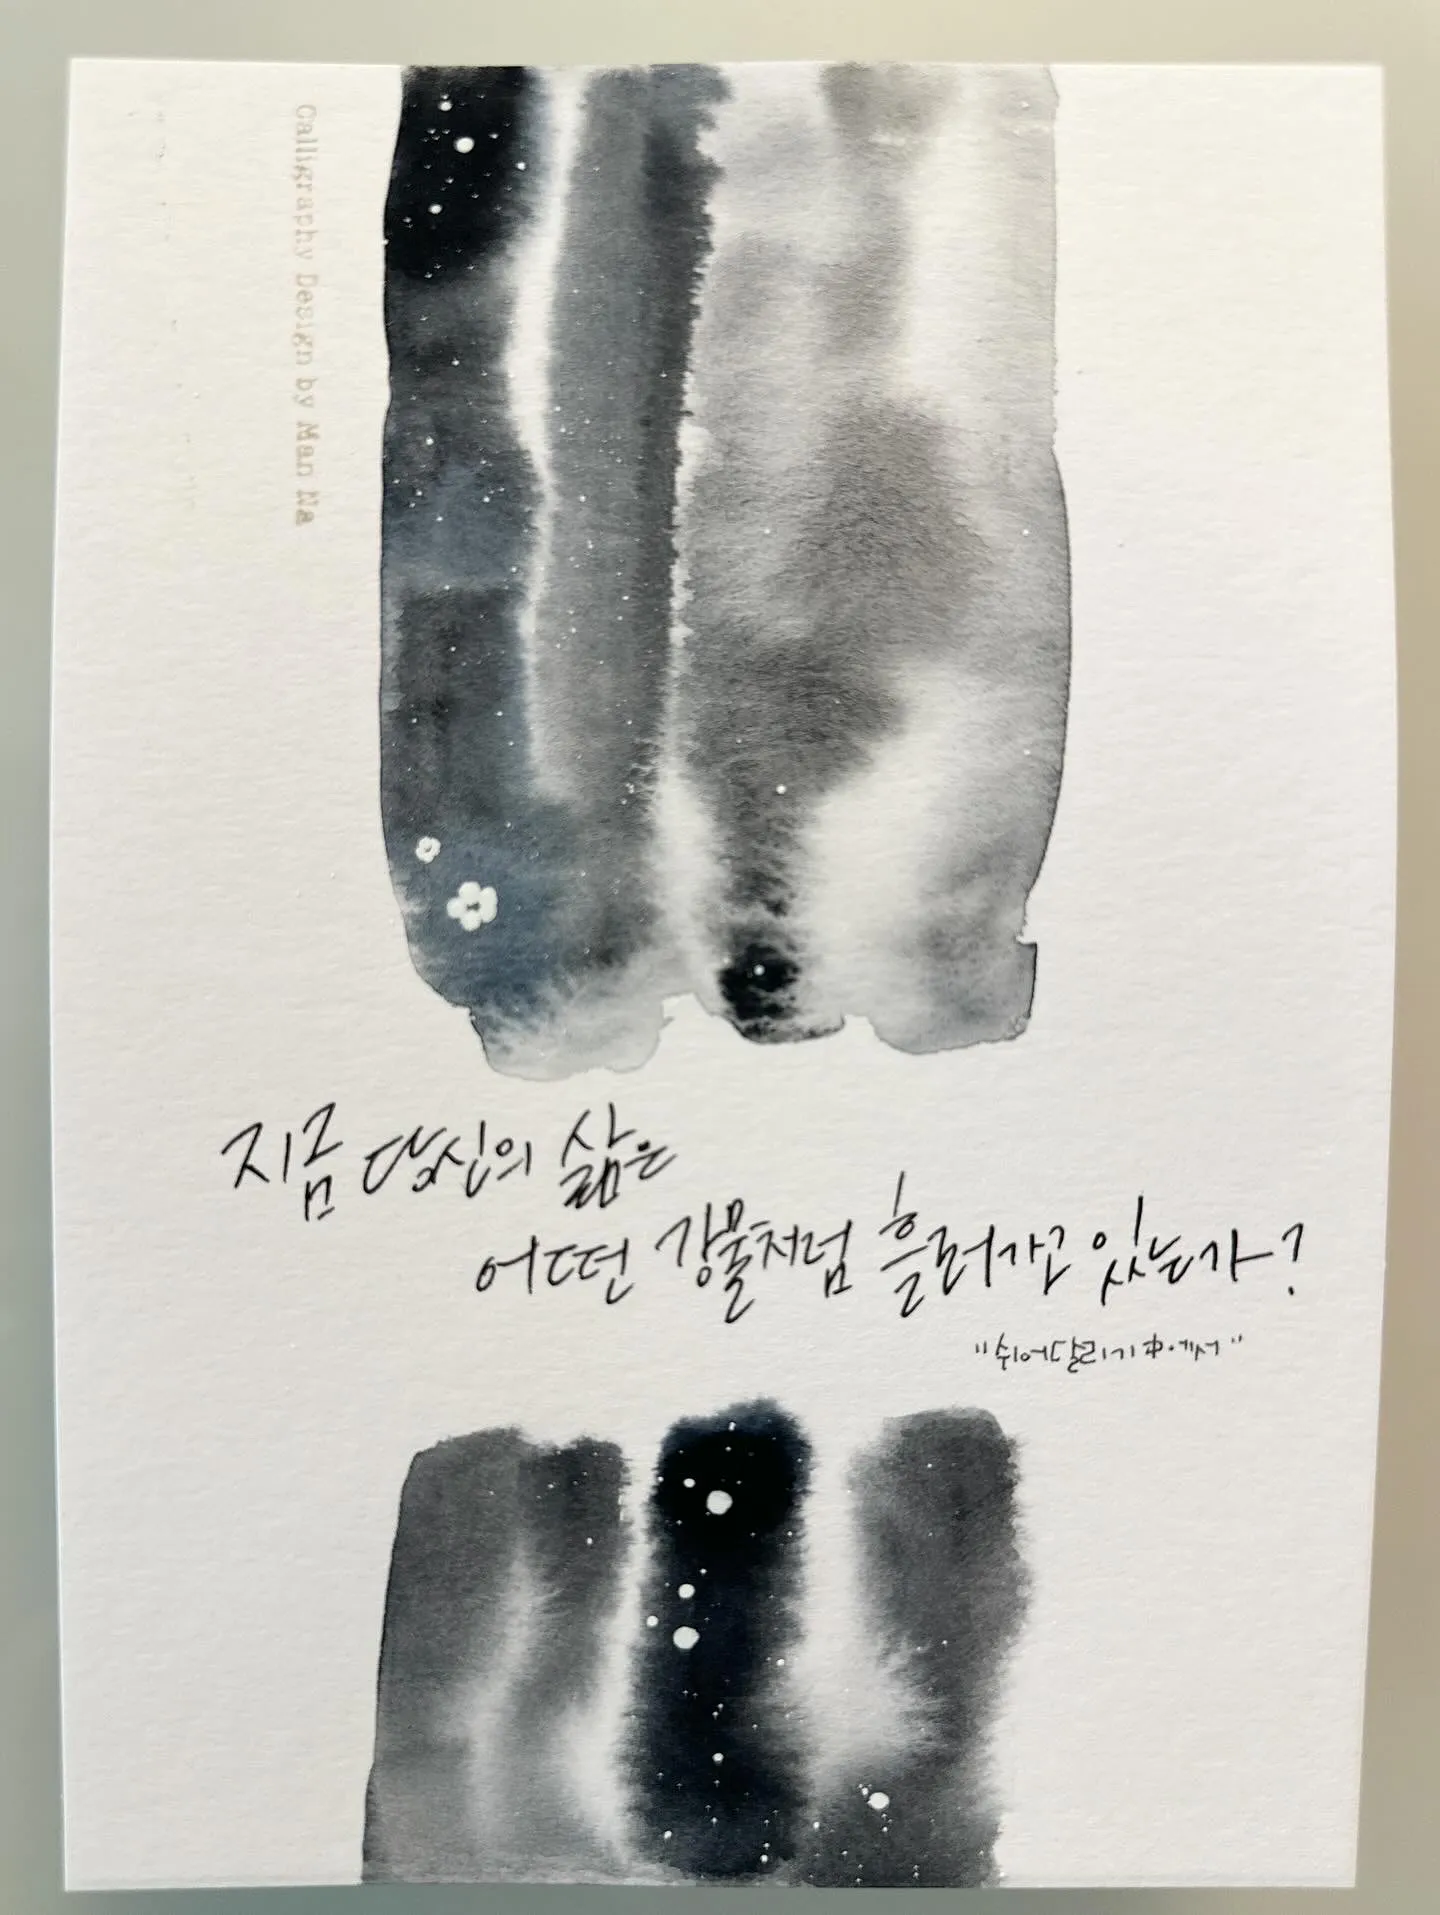 Calligraphy Design by Man Na
지금 당신의 삶은
어떤 강물처럼 흘러가고 있는가?
"쉬어달리기 中에서"